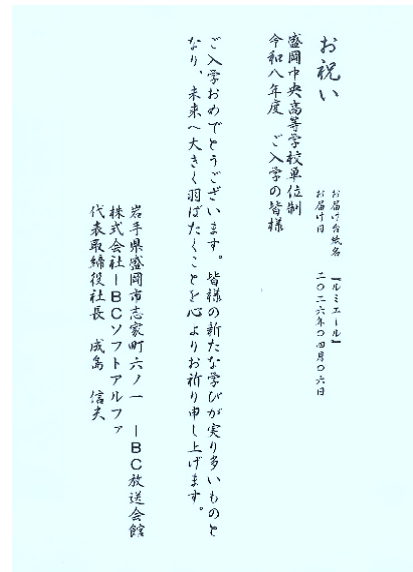 お祝い
お届け台紙名　『ルミエール』
お届け日　二〇二六年〇四月〇六日
盛岡中央高等学校単位制
令和八年度　ご入学の皆様
ご入学おめでとうございます。皆様の新たな学びが実り多いものと
なり、未来へ大きく羽ばたくことを心よりお祈り申し上げます。
岩手県盛岡市志家町六ノ一　IBC放送会館
株式会社IBCソフトアルファ
代表取締役社長　成島　信夫